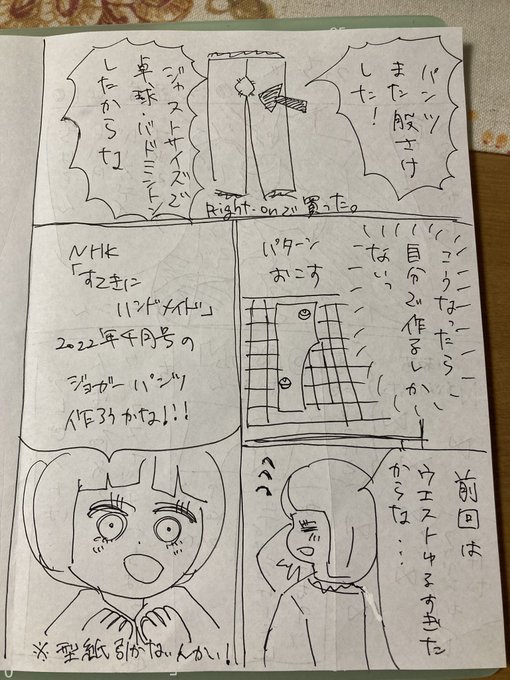 パンツ
また股さけ
した!
ジャストサイズで
卓球・バドミントン
したからな
Right-onで買った。
こうなったら
自分で作るしか
ないっ
パターン
おこす
NHK
「すてきに
ハンドメイド」
2022年4月号の
ジョガーパンツ
作ろうかな!!!
前回は
ウエストゆるすぎた
からな…
※型紙引かないんかい!